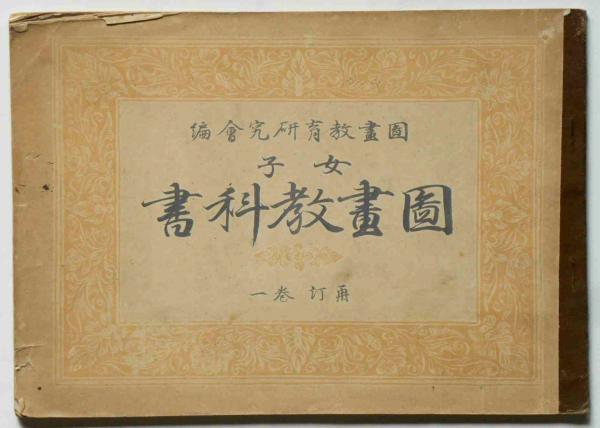 圖畫教育研究會編
女子
圖畫教科書
再訂 卷一